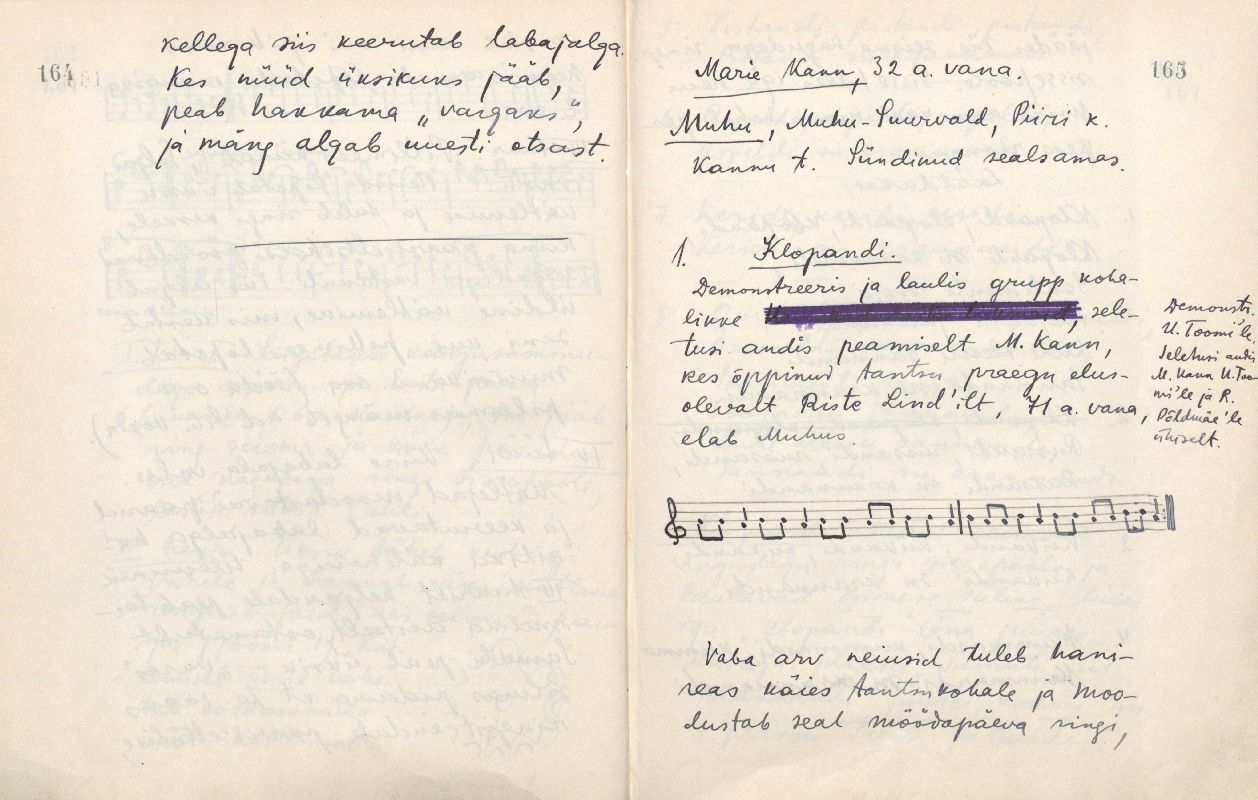 164
kellega siis keerutab labajalga.
Kes nüüd üksikuks jääb,
peab hakkama „vargaks",
ja mäng algab uuesti otsast.
165
Marie Kann, 32 a. vana.
Muhu, Muhu-Suurvald, Piiri k.
Kannu t. Sündinud sealsamas.
1. Klopandi.
Demonstreeris ja laulis grupp koha-
likke sele-
tusi andis peamiselt M. Kann,
kes õppinud tantsu praegu elus-
olevalt Riste Lind'ilt, 71 a. vana,
elab Muhus.
Demonstr.
U. Toomi'le,
Seletusi andis
M. Kann U. Too-
mi'le ja R.
Põldmäe'le
ühiselt.
Vaba arv neiusid tuleb hani-
reas käies tantsukohale ja moo-
dustab seal möödapäeva ringi,